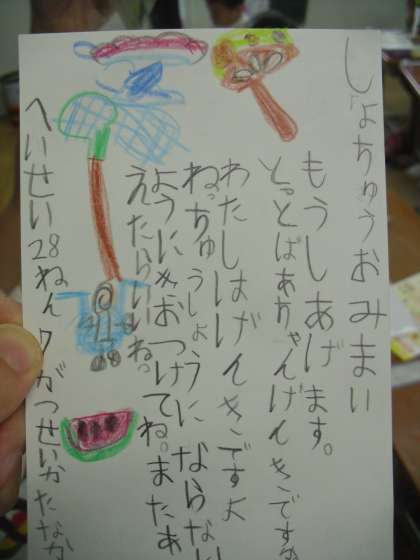 しょちゅうおみまい
もうしあげます。
とっとばあちゃんげんきですか
わたしはげんきですよ
ねっちゅうしょうにならない
ようにきおつけてね。またあ
えたらいいね。
へいせい28ねん7がつせいかたなか